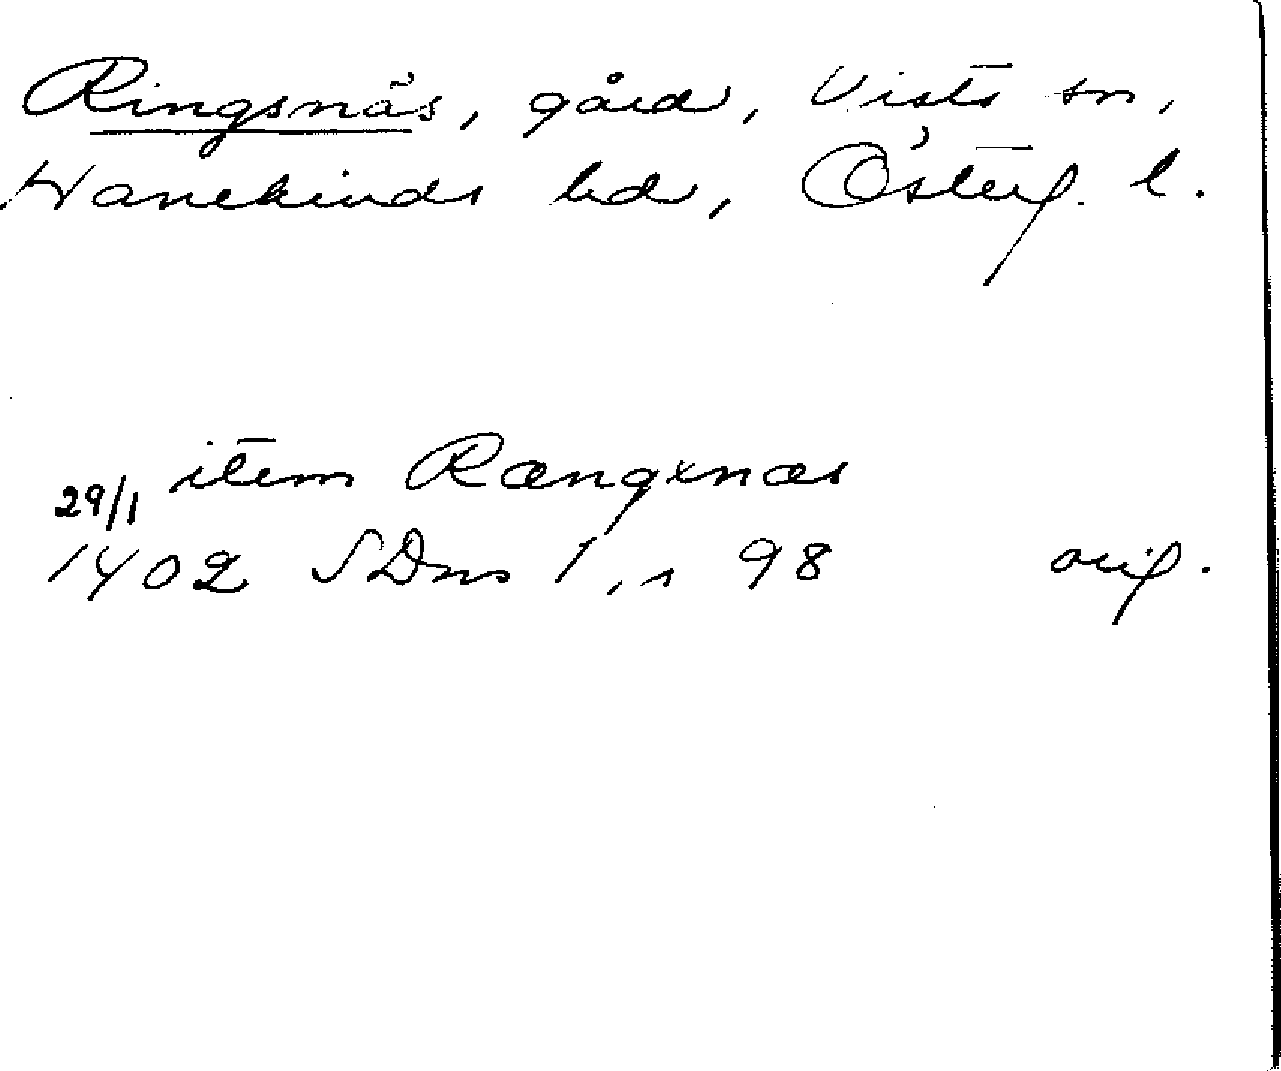 Ringsnäs, gård, Vists sn,
Hanekinds hd, Österg. l.
item Rængxnæs
29/1
1402 SDns 1, s 98 orig.